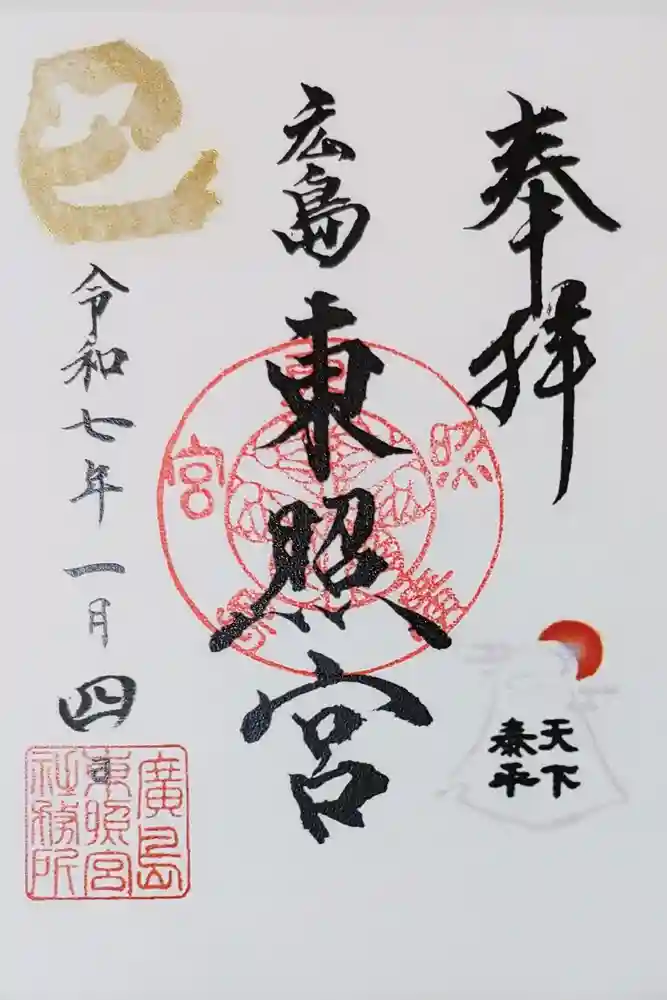 奉拝
天下
泰平
広島東照宮
東照宮
巳
令和七年一月四
廣島
東照宮
社務所